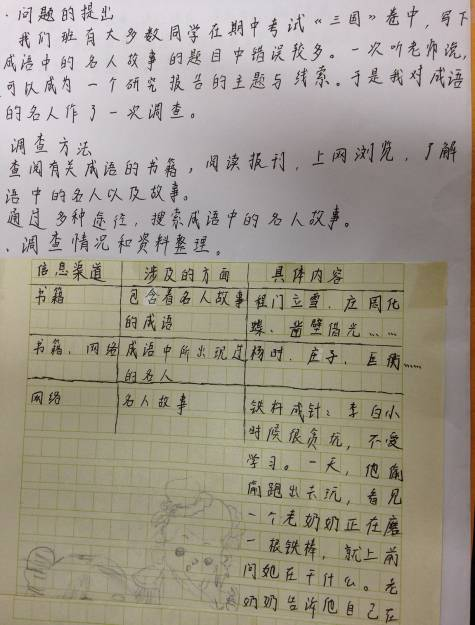 ·问题的提出
我们班有大多数同学在期中考试“三国”卷中,写下
成语中的名人故事的题目中错误较多。一次听老师说,
可以成为一个研究报告的主题与线索。于是我对成语
的名人作了一次调查。
调查方法
查阅有关成语的书籍,阅读报刊,上网浏览,了解
语中的名人以及故事。
通过多种途径,搜索成语中的名人故事。
、调查情况和资料整理。
信息渠道 涉及的方面 具体内容
书籍 包含着名人故事 程门立雪、庄周化
的成语 蝶、凿壁借光……
书籍、网络 成语中所出现过 杨时、庄子、匡衡……
的名人
网络 名人故事 铁杵成针:李白小
时候很贪玩,不爱
学习。一天,他偷
偷跑出去玩,看见
一个老奶奶正在磨
一根铁棒,就上前
问她在干什么。老
奶奶告诉他自己在